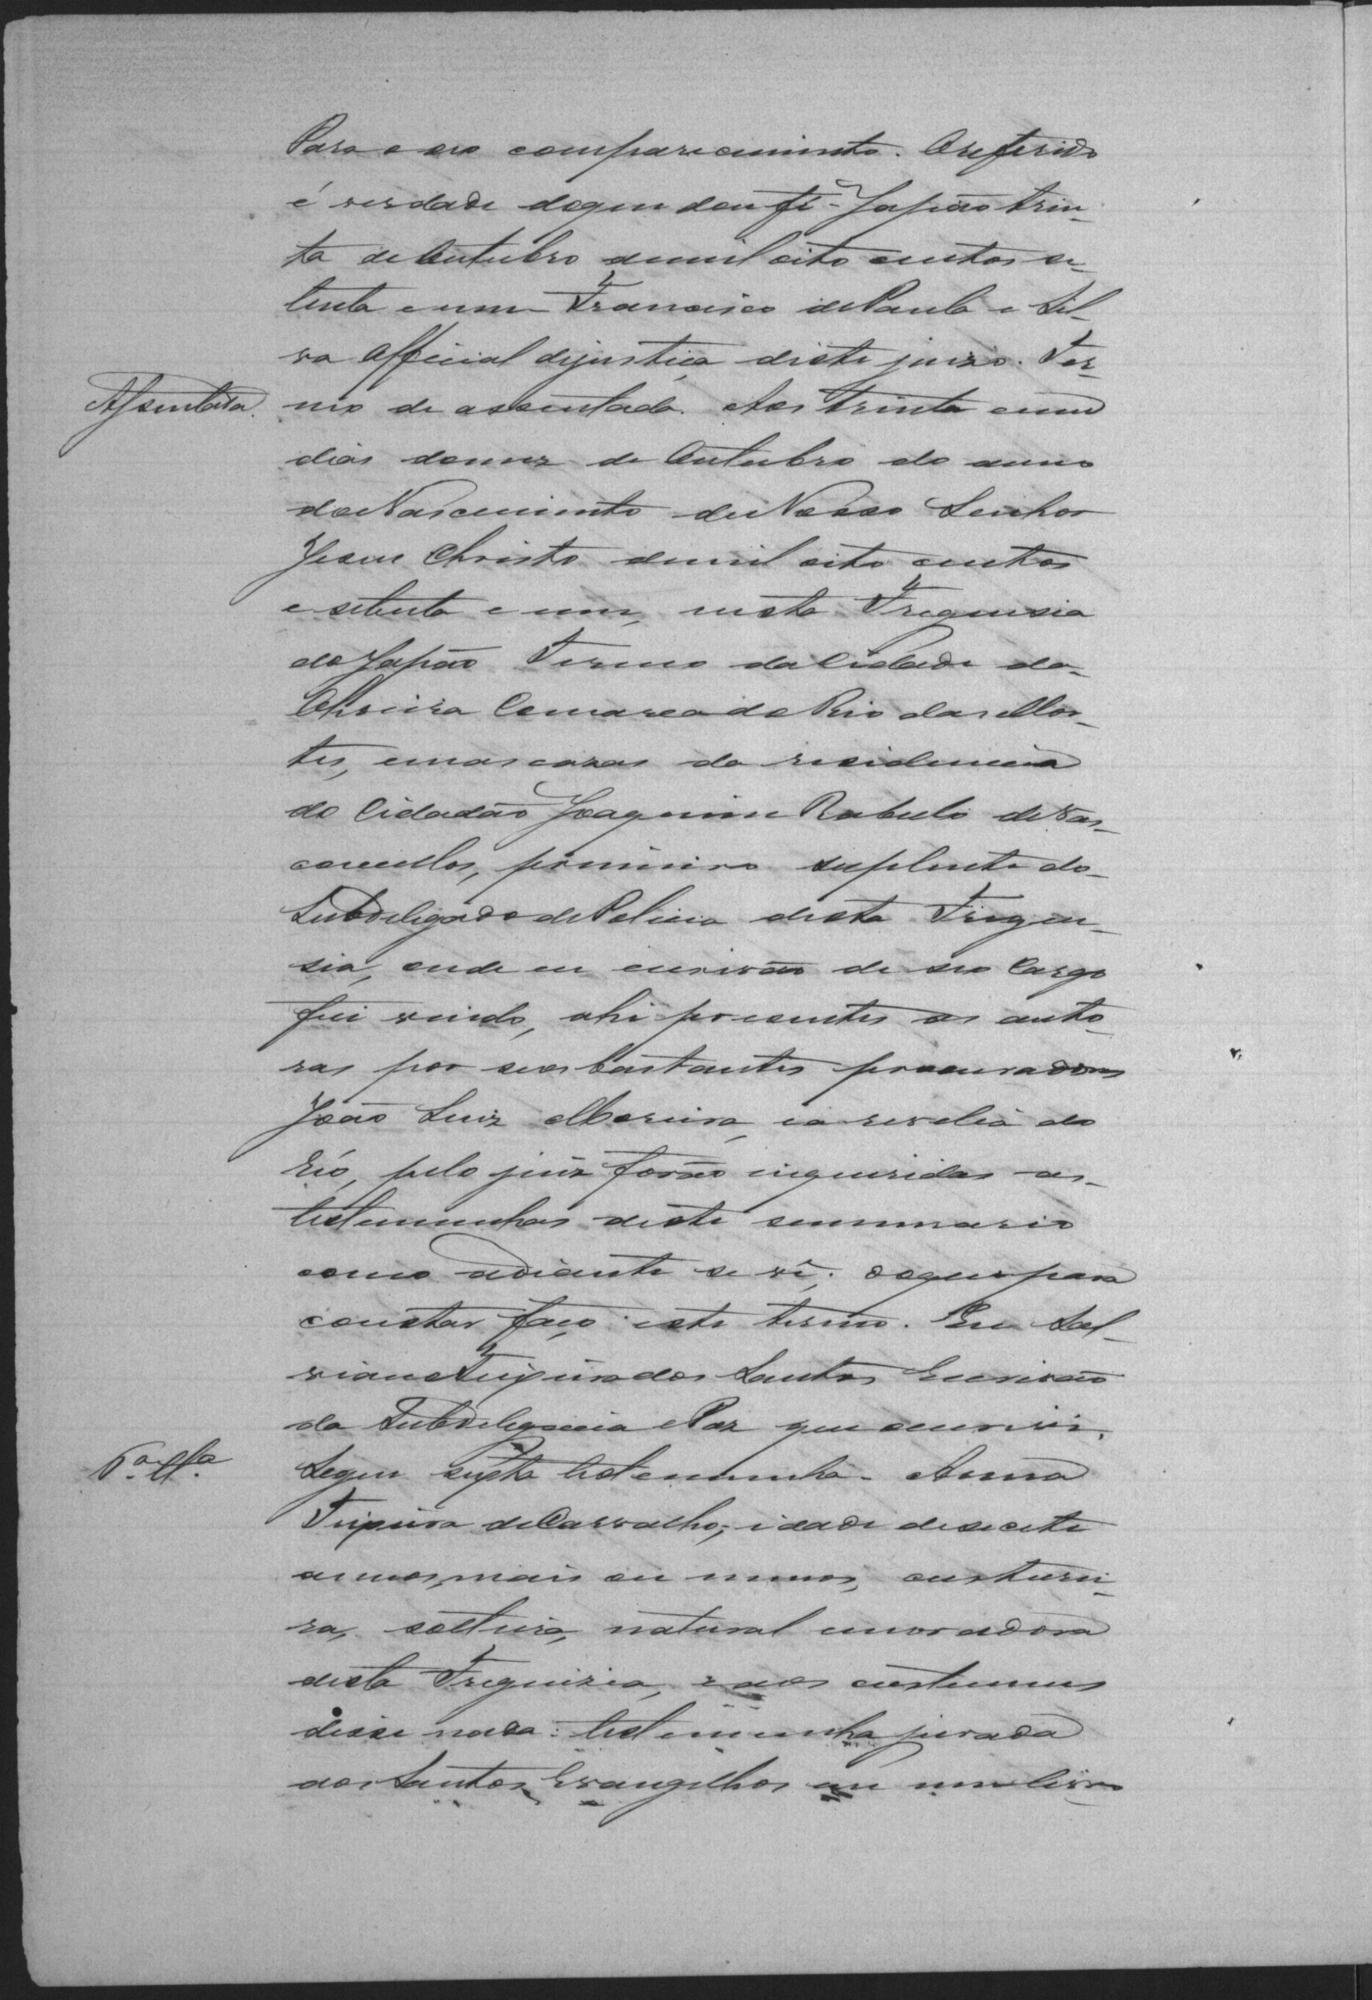 Para o seo comparecimento. O referido
é verdade do que dou fé - Japão trin-
ta de Outubro de mil oito centos se-
tenta e um Francisco de Paula e Sil-
va Official de justiça deste juizo. Ter-
Assentada.
mo de assentada. Aos trinta e um
dias do mez de Outubro do anno
do Nascimento de Nosso Senhor
Jesus Christo de mil oito centos
e setenta e um, nesta Freguesia
do Japão Termo da Cidade da
Oliveira Comarca do Rio das Mor-
tes, em as cazas da residencia
do Cidadão Joaquim Rabelo de Vas-
concellos, primeiro suplente do
Subdelegado de Policia desta Fregue-
sia, onde eu escrivão de seo Cargo
fui vindo, ahi presentes as auto-
ras por seos bastantes procuradores
João Luiz Moreira, e a revelia do
Réo, pelo juiz forão inqueridas as
testemunhas deste summario
como adiante se vê; do que para
constar faço este termo. Eu Sal-
viano Teixeira dos Santos Escrivão
da Subdelegacia e Paz que escrevi.
6ª Tª
Segue sexta testemunha - Anna
Teixeira de Carvalho, idade desecete
annos, mais ou menos, custurei-
ra, solteira, natural e moradora
desta Freguizia, e aos custumes
disse nada: testemunha jurada
aos Santos Evangelhos em um livro